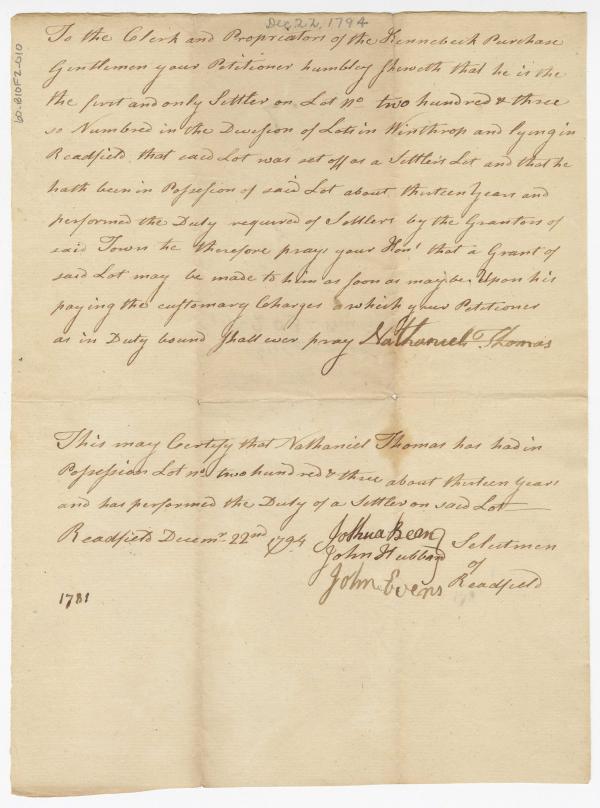 Dec 22, 1794
60-B10F2-010
To the Clerk and Propriators of the Kennebeck Purchase
Gentlemen your Petitioner humbley sheweth that he is the
the first and only Settler on Lot no two hundred & three
so Numbred in the Division of Lots in Winthrop and lying in
Readfield, that said Lot was set off as a Settlers Lot and that he
hath been in Possession of said Lot about thirteen Years and
performed the Duty required of Settlers by the Grantors of
said Town he therefore prays your Honrs that a Grant of
said Lot may be made to him as soon as maybe Upon his
paying the customary Charges which your Petitioner
as in Duty bound shall ever pray Nathaniel Thomas
This may Certify that Nathaniel Thomas has had in
Possession Lot no two hundred & three about thirteen Years
and has performed the Duty of a Settler on said Lot
Readfield Decemr 22nd 1794 Joshua Bean
John Hubbard
John Evens
Selectmen
of
Readfield
1781